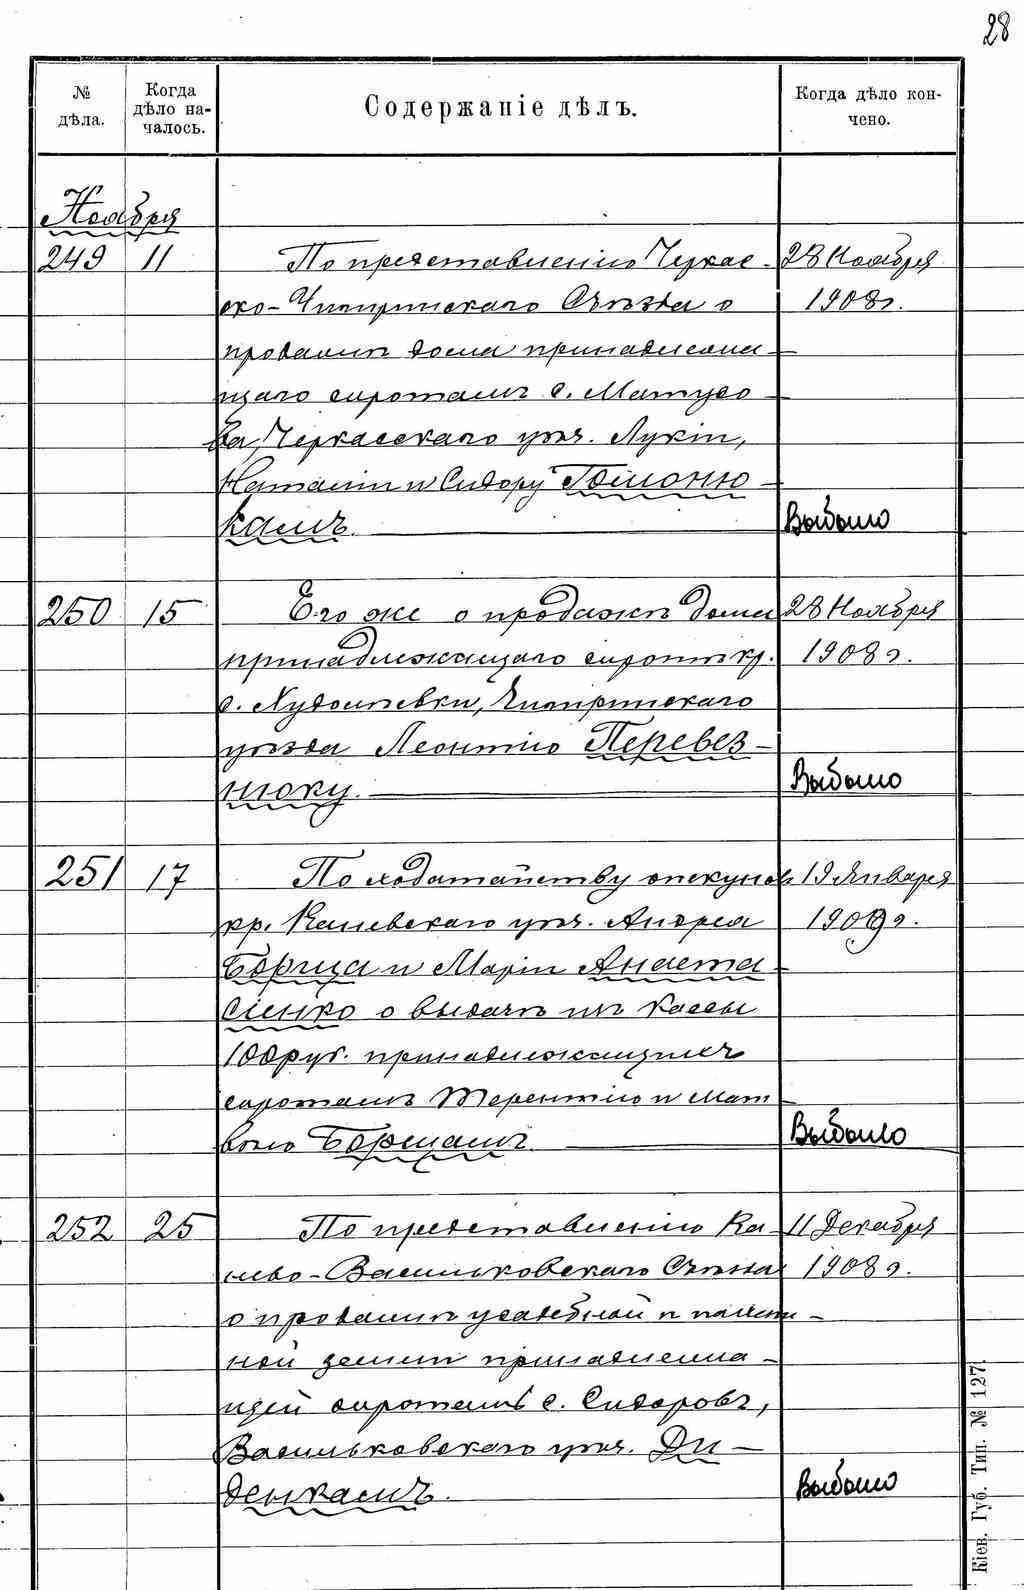 28
№ дѣла.
Когда дѣло началось.
Содержаніе дѣлъ.
Когда дѣло кончено.
Ноября
249 11 По представленію Черкас-
28 Ноября
ско-Чигиринскаго Съѣзда о
1908 г.
продажѣ дома принадлежа-
щаго сиротамъ с. Матусо
ва, Черкасскаго уѣз. Лукіи,
Наталіи и Сидору Гомоню
камъ.
Выбыло
250 15 Его же о продажѣ дома
28 Ноября
принадлежащаго сиротѣ кр.
1908 г.
с. Худолѣевки, Чигиринскаго
уѣзда Леонтію Перевез-
нюку.
Выбыло
251 17 По ходатайству опекуновъ
19 Января
кр. Каневскаго уѣз. Андрея
1909 г.
Борща и Маріи Анаста-
сіенко о выдачѣ изъ кассы
100 руб. принадлежащихъ
сиротамъ Терентію и Мат-
вѣю Борщамъ.
Выбыло
252 25 По представленію Ка-
11 Декабря
нево-Васильковскаго Съѣзда
1908 г.
о продажѣ усадебной и пахат-
ной земли принадлежа-
щей сиротамъ с. Сидоровъ,
Васильковскаго уѣз. Ди-
денкамъ.
Выбыло
Кіев. Губ. Тип. № 127.